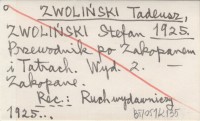 ZWOLIŃSKI Tadeusz,
ZWOLIŃSKI Stefan 1925.
Przewodnik po Zakopanem
i Tatrach. Wyd. 2. —
Zakopane.
Rec.: Ruch wydawniczy
1925...